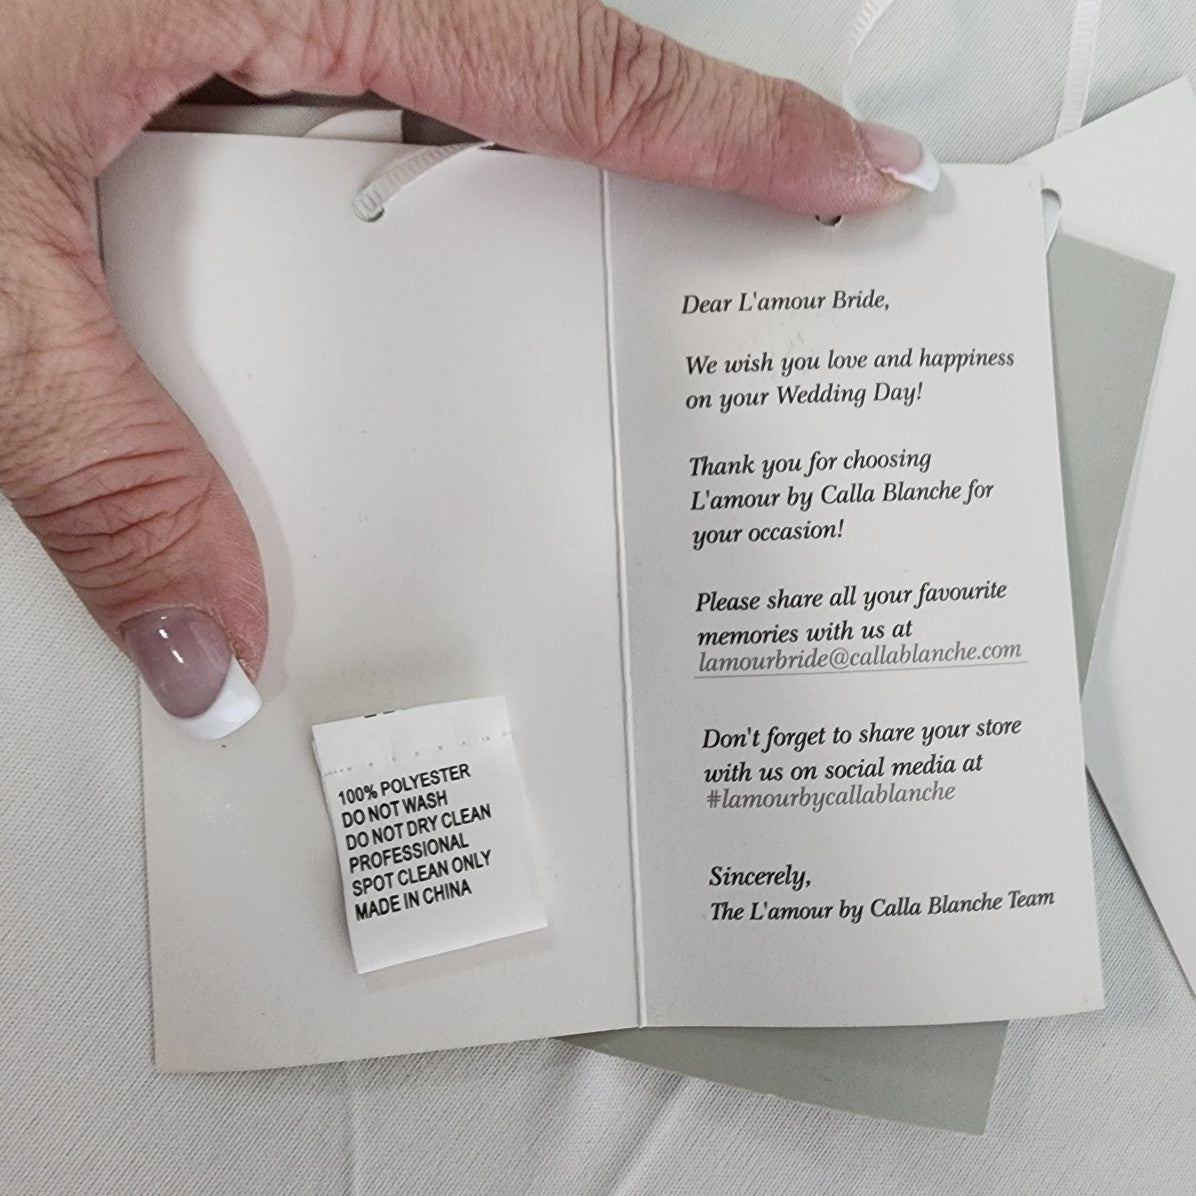 100% POLYESTER
DO NOT WASH
DO NOT DRY CLEAN
PROFESSIONAL
SPOT CLEAN ONLY
MADE IN CHINA
Dear L'amour Bride,
We wish you love and happiness
on your Wedding Day!
Thank you for choosing
L'amour by Calla Blanche for
your occasion!
Please share all your favourite
memories with us at
lamourbride@callablanche.com
Don't forget to share your store
with us on social media at
#lamourbycallablanche
Sincerely,
The L'amour by Calla Blanche Team